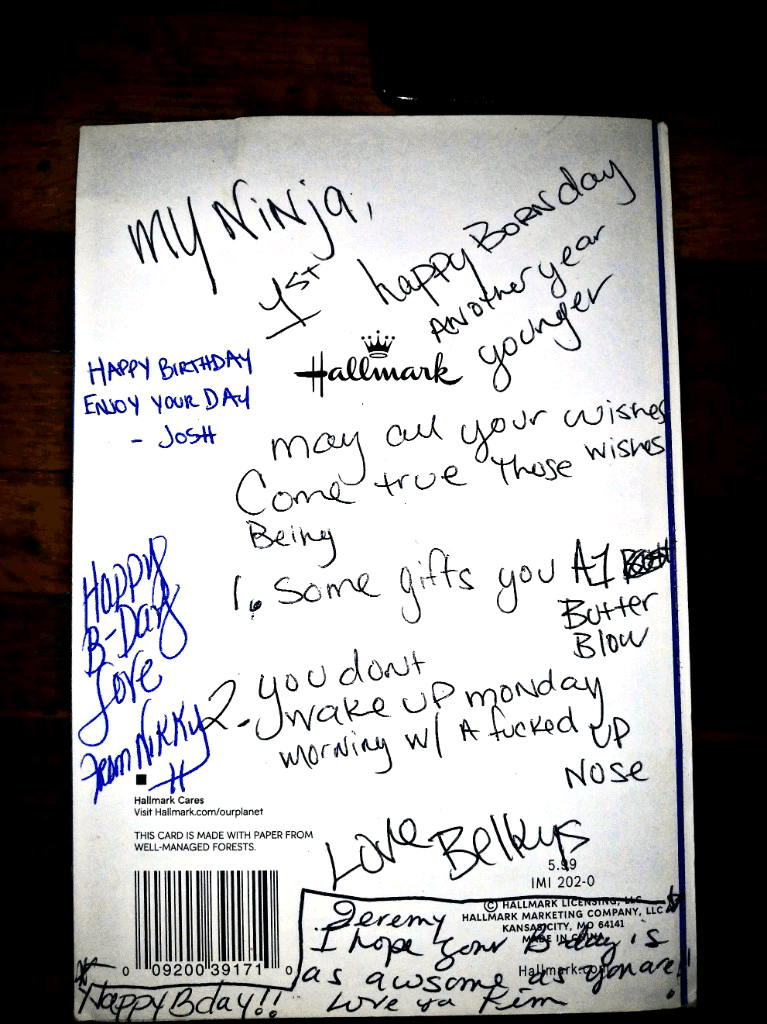 My Ninja,
1st happy BORNday
Another year
younger
Hallmark
HAPPY BIRTHDAY
ENJOY YOUR DAY
- JOSH
may all your wishes
Come true those wishes
Being
1. Some gifts you A1
Butter
Blow
2. you dont
wake up monday
morning w/ A fucked UP
NOSE
Love Belkys
Happy
B-Day
Love
From Nikky
Hallmark Cares
Visit Hallmark.com/ourplanet
THIS CARD IS MADE WITH PAPER FROM
WELL-MANAGED FORESTS.
5.99
IMI 202-0
© HALLMARK LICENSING, LLC
HALLMARK MARKETING COMPANY, LLC
KANSAS CITY, MO 64141
MADE IN CHINA
Hallmark.com
0 09200 39171 0
Jeremy
I hope your B-day is
as awsome as you are!
Love ya Kim
Happy Bday!!